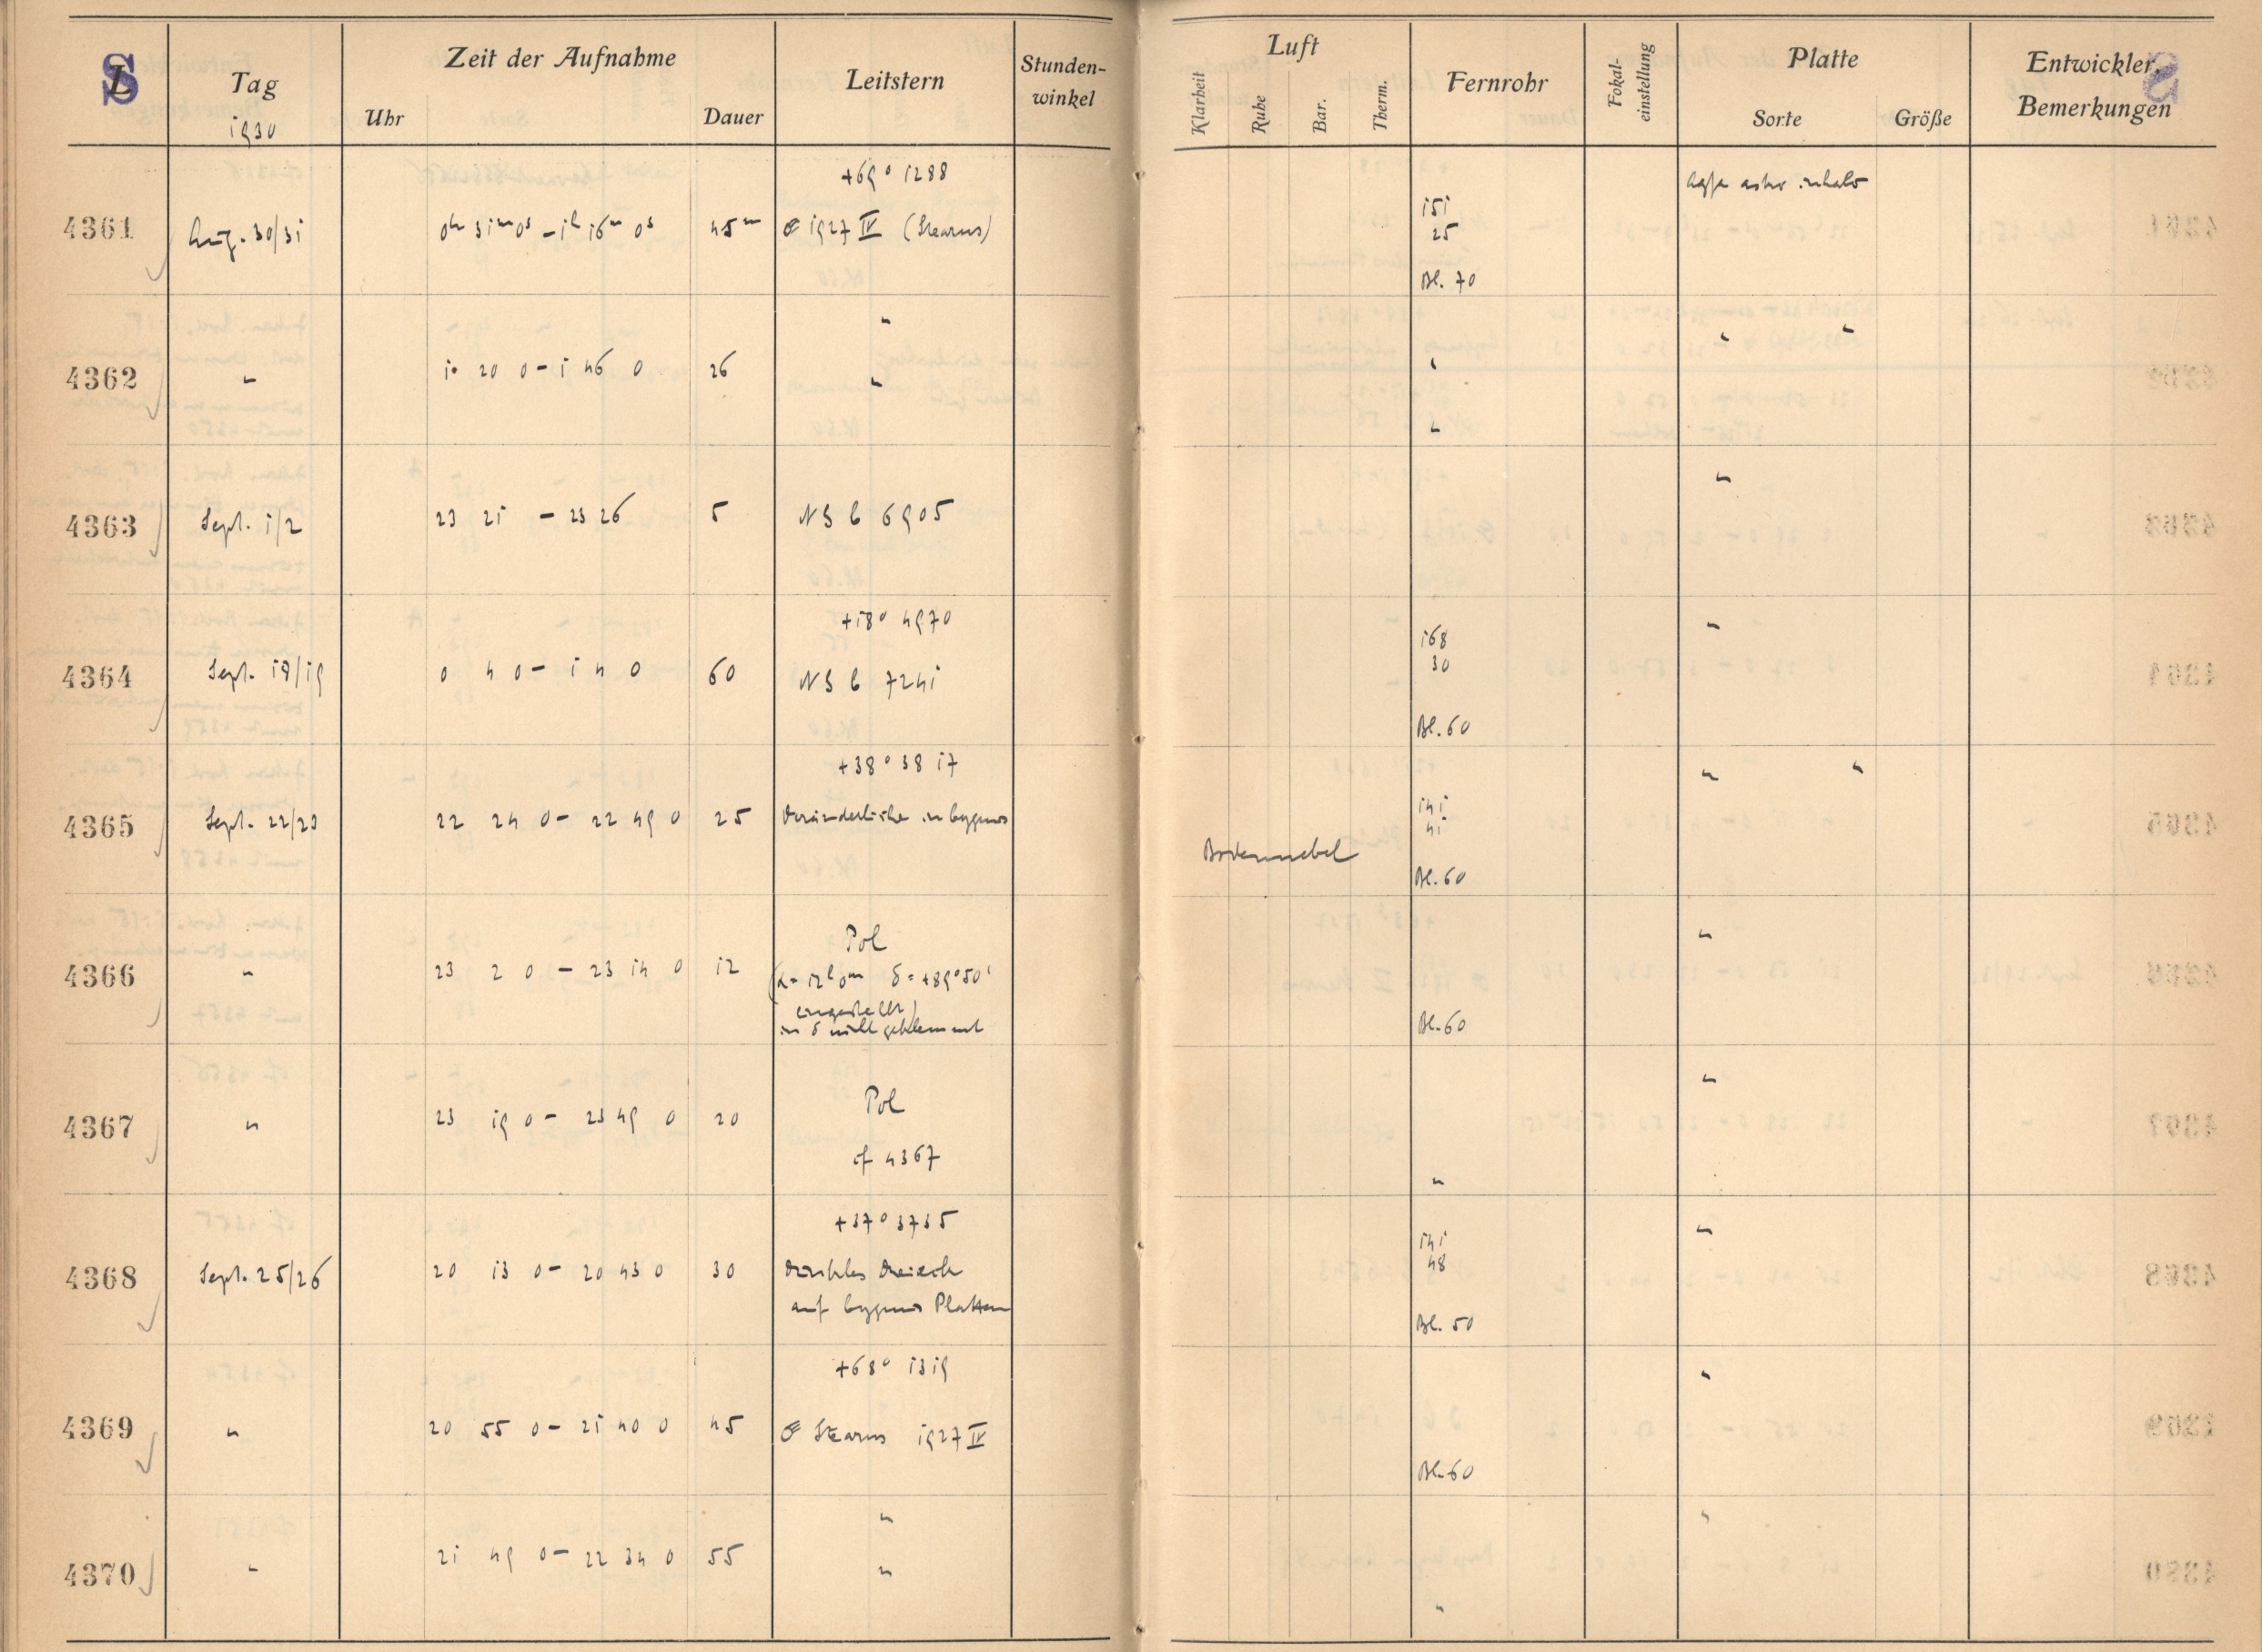 S
L
Tag
1930
Zeit der Aufnahme
Uhr
Dauer
Leitstern
Stunden-
winkel
Luft
Klarheit
Ruhe
Bar.
Therm.
Fernrohr
Fokal-
einstellung
Platte
Sorte
Größe
Entwickler,
Bemerkungen
+69° 1288
4361 Aug. 30/31 0h 31m 0s – 1h 16m 0s 45m 1927 IV (Stearns)
151
25
Bl. 70
Agfa astro
"
4362 " 1 20 0 – 1 46 0 26 "
" "
"
"
4363 Sept. 1/2 23 21 – 23 26 5 N S 6 6905
"
+18° 4970
4364 Sept. 18/19 0 4 0 – 1 4 0 60 N S 6 7241
168
30
Bl. 60
"
+38° 3817
4365 Sept. 22/23 22 24 0 – 22 49 0 25 Veränderliche in Cygnus
Bodennebel
141
41
Bl. 60
" "
Pol
4366 " 23 2 0 – 23 14 0 12 (α = 12h 0m δ = +89°50'
eingestellt)
in δ nicht geklemmt
Bl. 60
"
Pol
4367 " 23 19 0 – 23 49 0 20
cf 4367
"
"
+37° 3735
4368 Sept. 25/26 20 13 0 – 20 43 0 30 dunkles Dreieck
auf Cygnus Platten
141
48
Bl. 50
"
+68° 1319
4369 " 20 55 0 – 21 40 0 45 Stearns 1927 IV
Bl. 60
"
"
4370 " 21 49 0 – 22 34 0 55 "
"
"